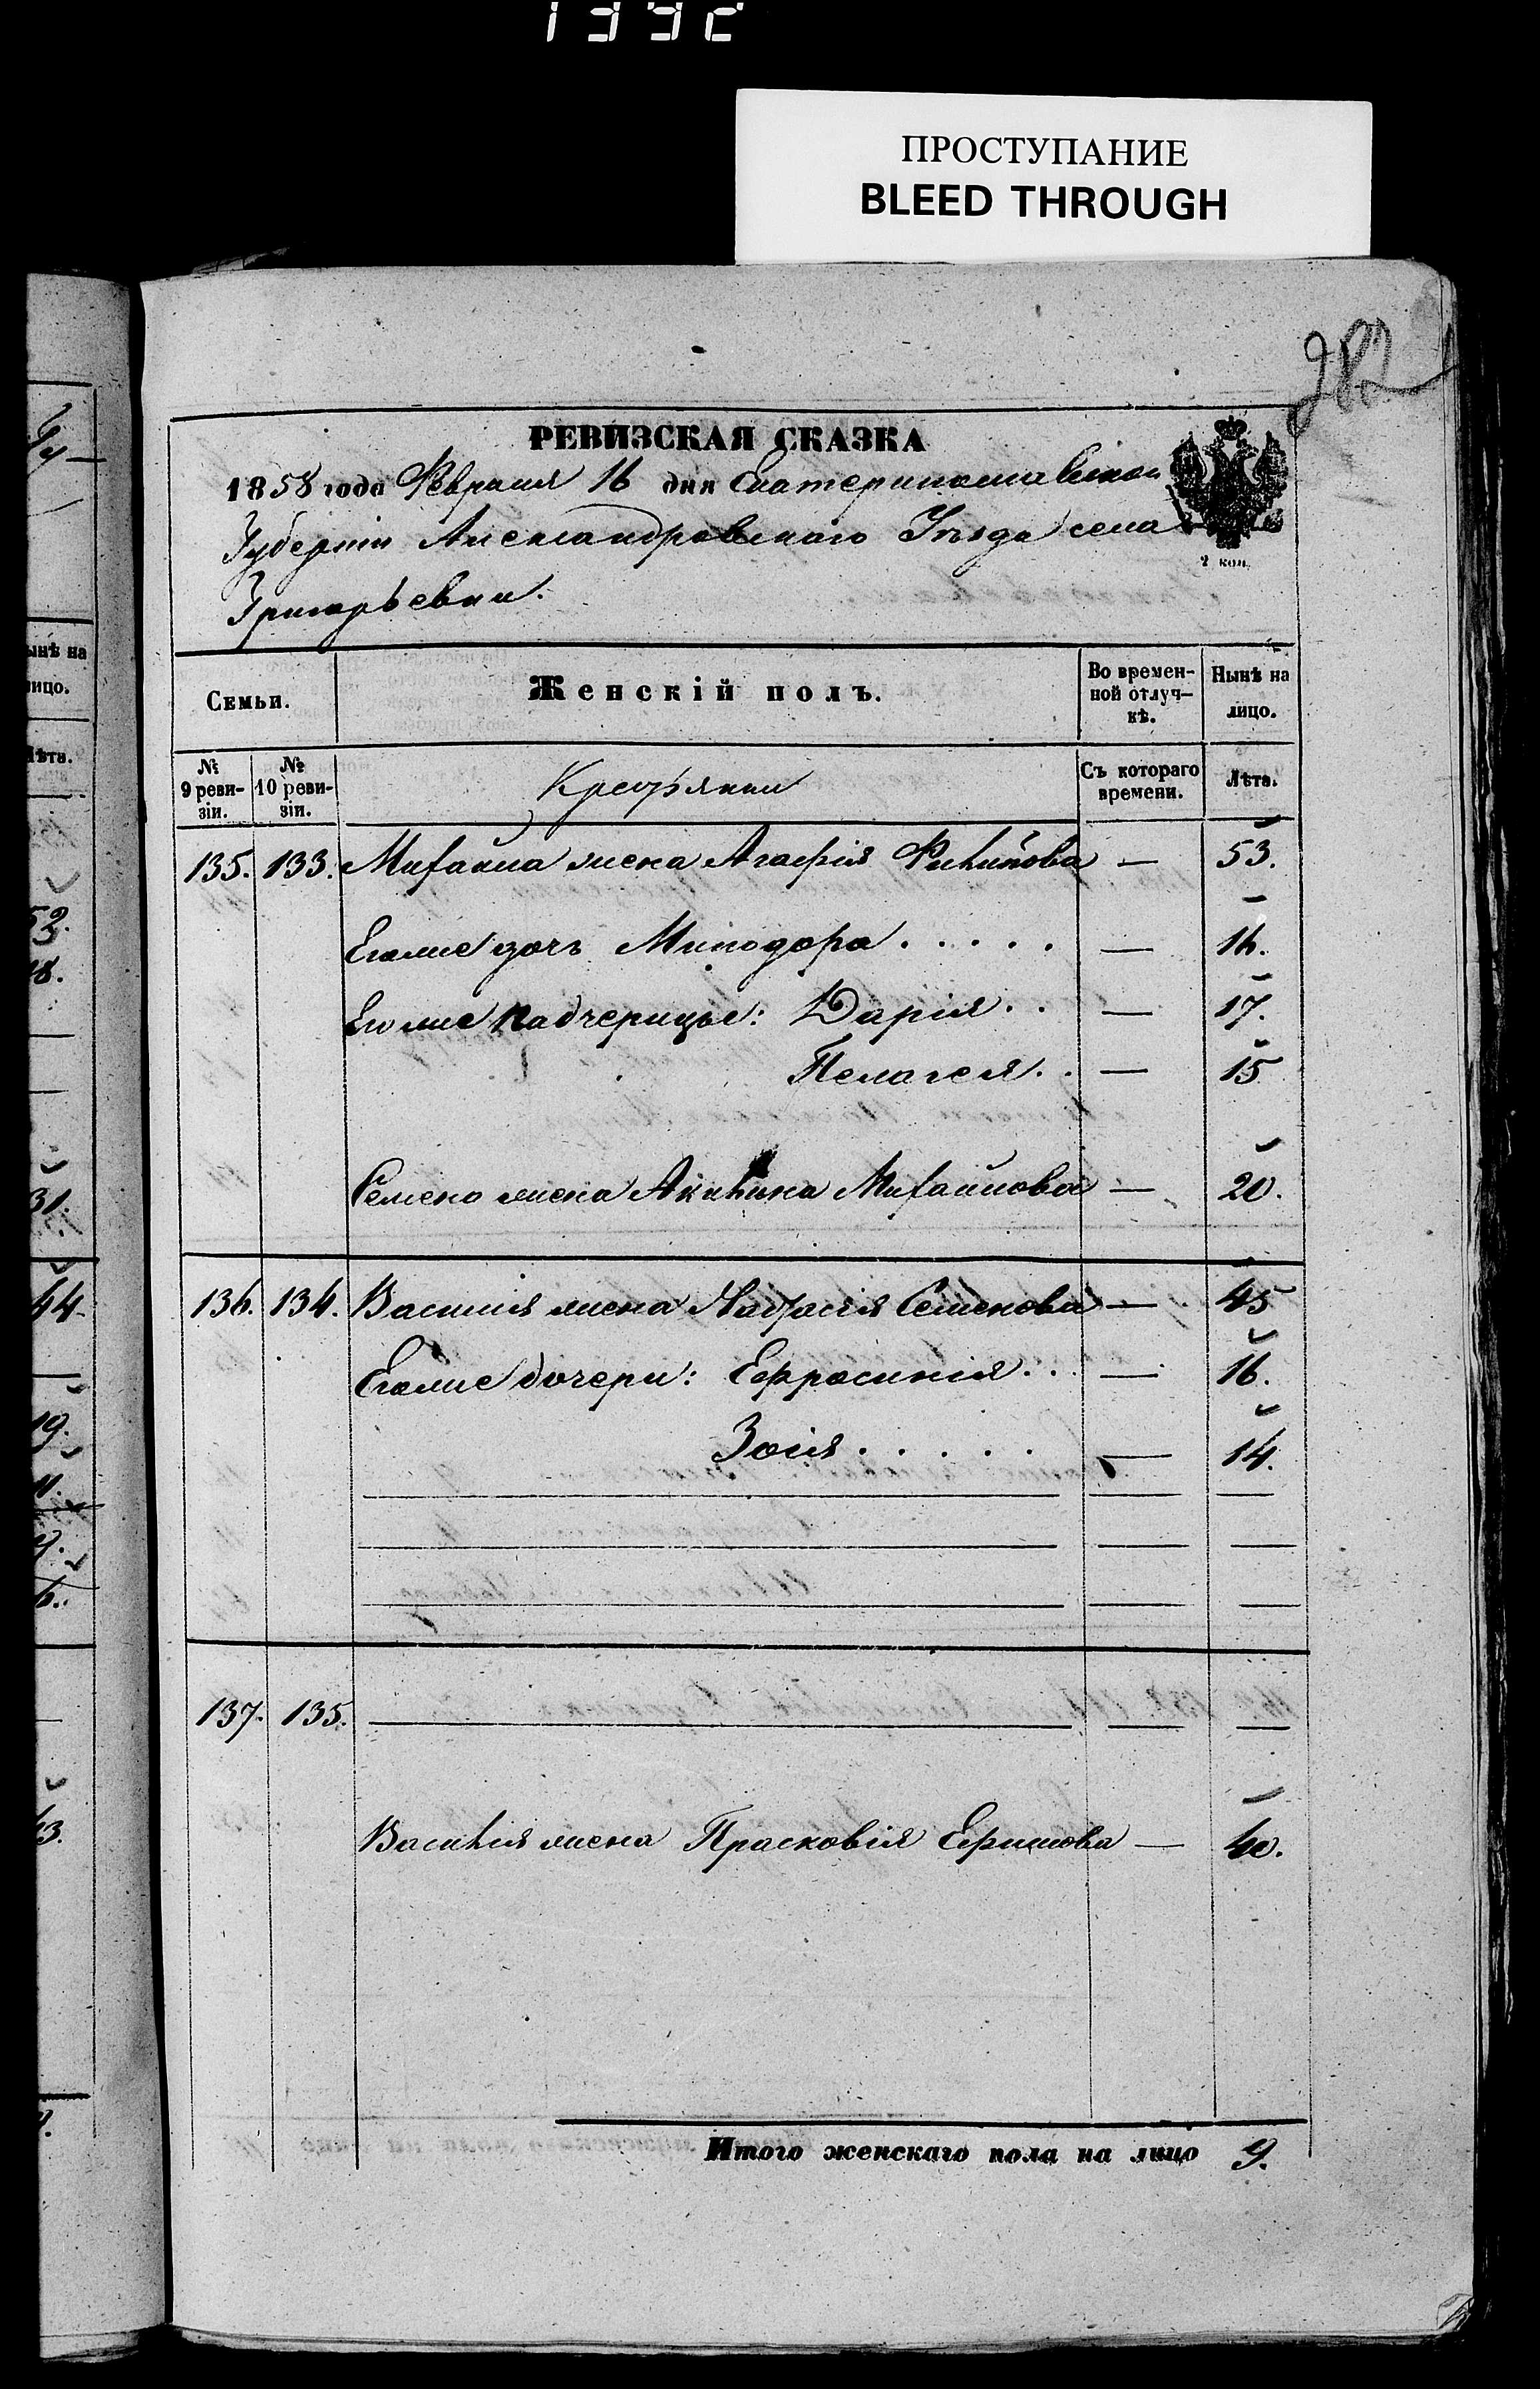 1392
ПРОСТУПАНИЕ
BLEED THROUGH
282
РЕВИЗСКАЯ СКАЗКА
1858 года Февраля 16 дня Екатеринославской
Губерніи Александровскаго Уѣзда села
Григорьевки.
2 коп.
Семьи. Женскій полъ. Во времен- ной отлуч- кѣ. Нынѣ на лицо.
№ 9 реви- зіи. № 10 реви- зіи. Крестьянки Съ котораго времени. Лѣта.
135. 133. Михайла жена Агафія Филипова — 53.
Егоже дочь Минодора . . . . . — 16.
Егоже падчерицы: Дарія . . — 17.
Пелагея . . — 15
Семена жена Акилина Михайлова — 20.
136. 134. Василія жена Настасія Семенова — 45
Егоже дочери: Ефросинія . . . — 16.
Зоія . . . . . — 14.
137. 135. — — —
Василія жена Прасковія Ефимова — 40.
Итого женскаго пола на лицо 9.
ынѣ на
лицо.
Лѣта.
52.
18.
31.
44.
19.
11.
43.